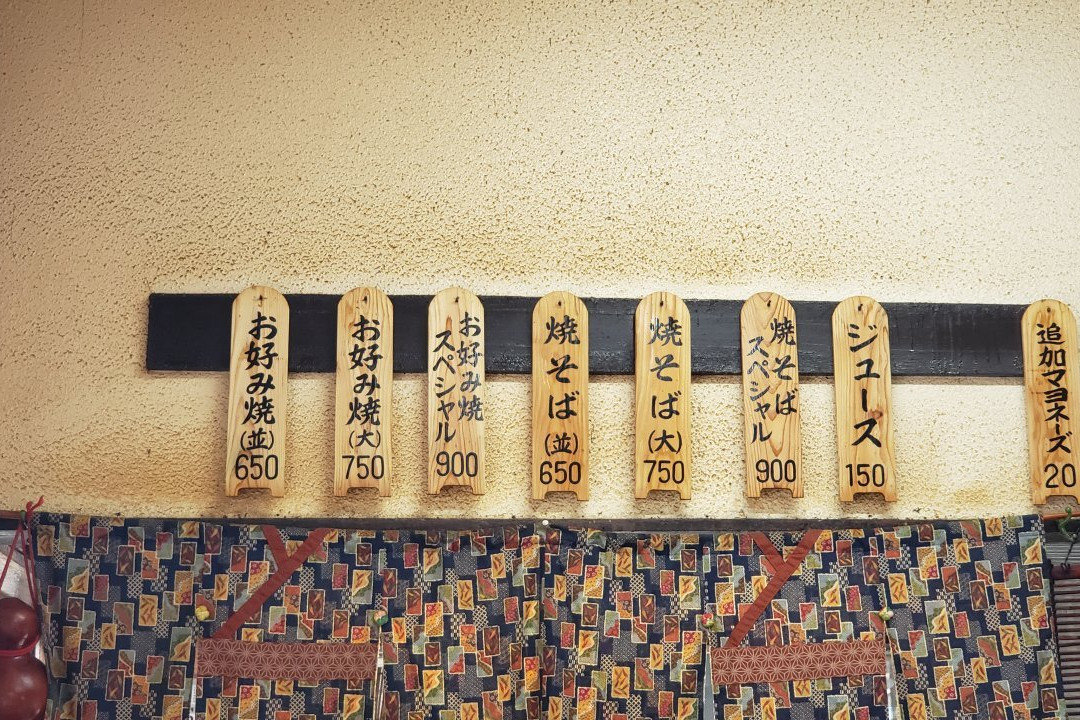 お好み焼
(並)
650
お好み焼
(大)
750
お好み焼
スペシャル
900
焼そば
(並)
650
焼そば
(大)
750
焼そば
スペシャル
900
ジュース
150
追加マヨネーズ
20